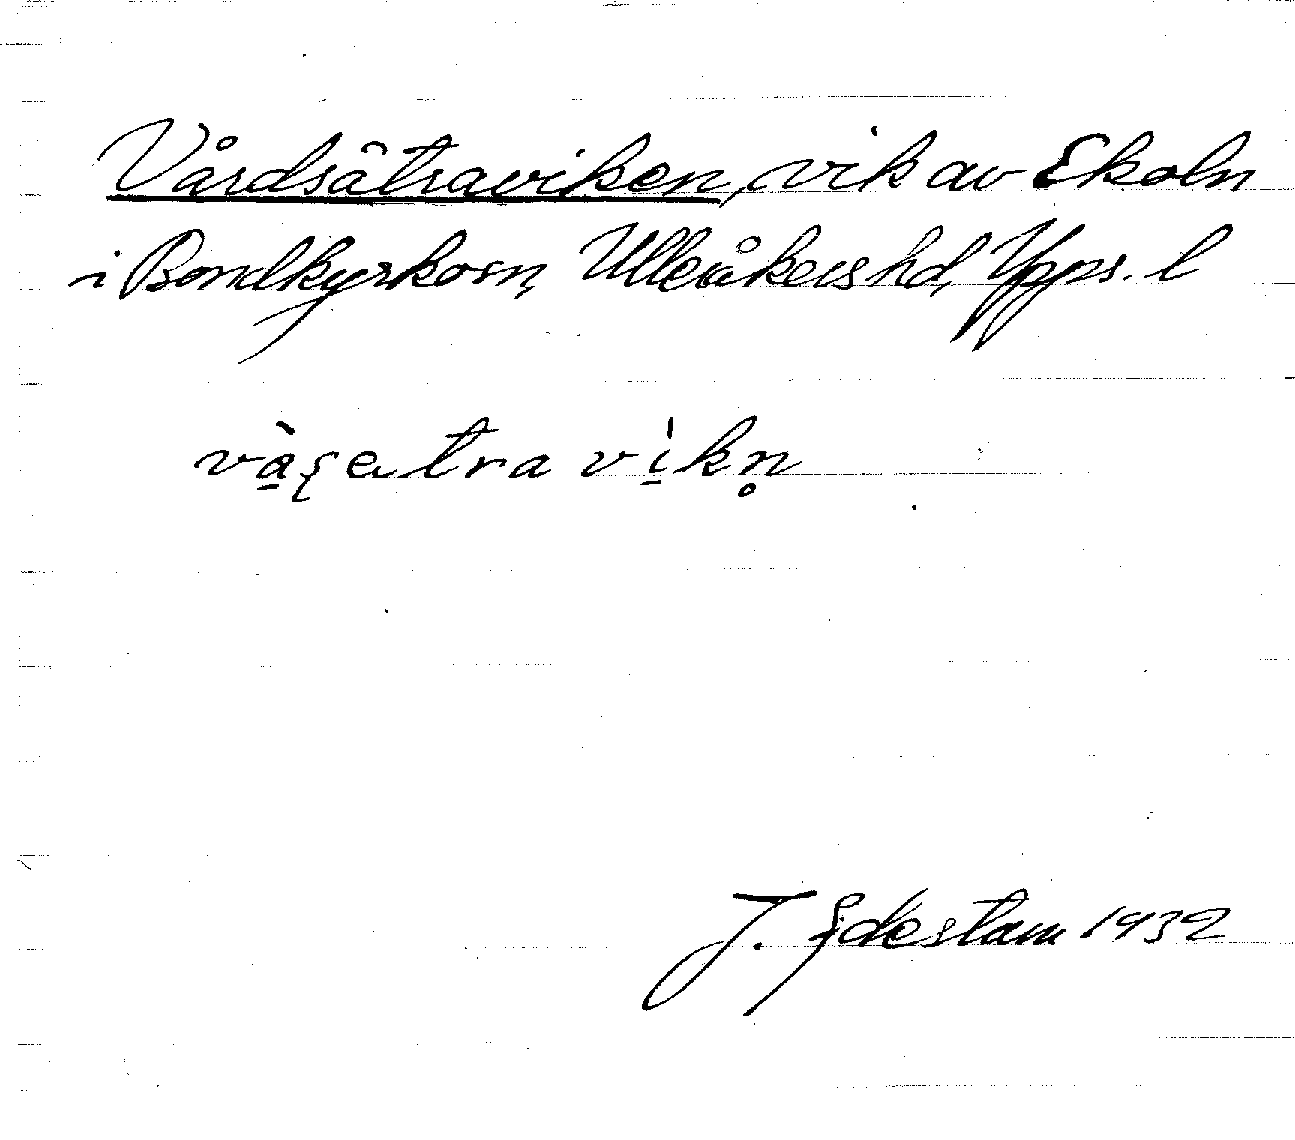 Vårdsätraviken, vik av Ekoln
i Bondkyrkosn, Ulleråkers hd, Upps. l
vàʂetra vìkn̥
J. Edestam 1932